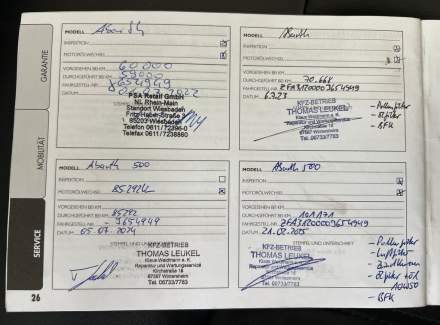 GARANTIE
MOBILITÄT
SERVICE
MODELL Abarth
INSPEKTION
MOTORÖLWECHSEL
VORGESEHEN BEI KM 60000
DURCHGEFÜHRT BEI KM 59000
FAHRGESTELL-NR. J654949
DATUM
PSA Retail GmbH
NL Rhein-Main
Standort Wiesbaden
Fritz-Haber-Straße
65203 Wiesbaden
Telefon 0611/72396-0
Telefax 0611/7238860
MODELL Abarth
INSPEKTION
MOTORÖLWECHSEL
VORGESEHEN BEI KM
DURCHGEFÜHRT BEI KM 70.668
FAHRGESTELL-NR. ZFA3120000J654949
DATUM 6.7.23
KFZ-BETRIEB
THOMAS LEUKEL
Klaus Weidmann e. K.
Reparatur und Wartungsservice
Kirchstraße 18
61197 Wintersheim
- Pollenfilter
- Ölfilter
- BFK
MODELL Abarth 500
INSPEKTION
MOTORÖLWECHSEL
VORGESEHEN BEI KM
DURCHGEFÜHRT BEI KM 85292
FAHRGESTELL-NR. J654949
DATUM 05.07.2024
STEMPEL UND UNTERSCHRIFT
KFZ-BETRIEB
THOMAS LEUKEL
Klaus Weidmann e. K.
Reparatur und Wartungsservice
Kirchstraße 18
Tel. 06733/7783
MODELL Abarth 500
INSPEKTION
MOTORÖLWECHSEL
VORGESEHEN BEI KM
DURCHGEFÜHRT BEI KM 101171
FAHRGESTELL-NR. ZFA3120000J654949
DATUM 21.02.2025
STEMPEL UND UNTERSCHRIFT
KFZ-BETRIEB
THOMAS LEUKEL
Klaus Weidmann e. K.
Tel. 06733/7783
- Pollenfilter
- Luftfilter
- Zündkerzen
- Ölfilter + Öl
10W50
- BFK
26